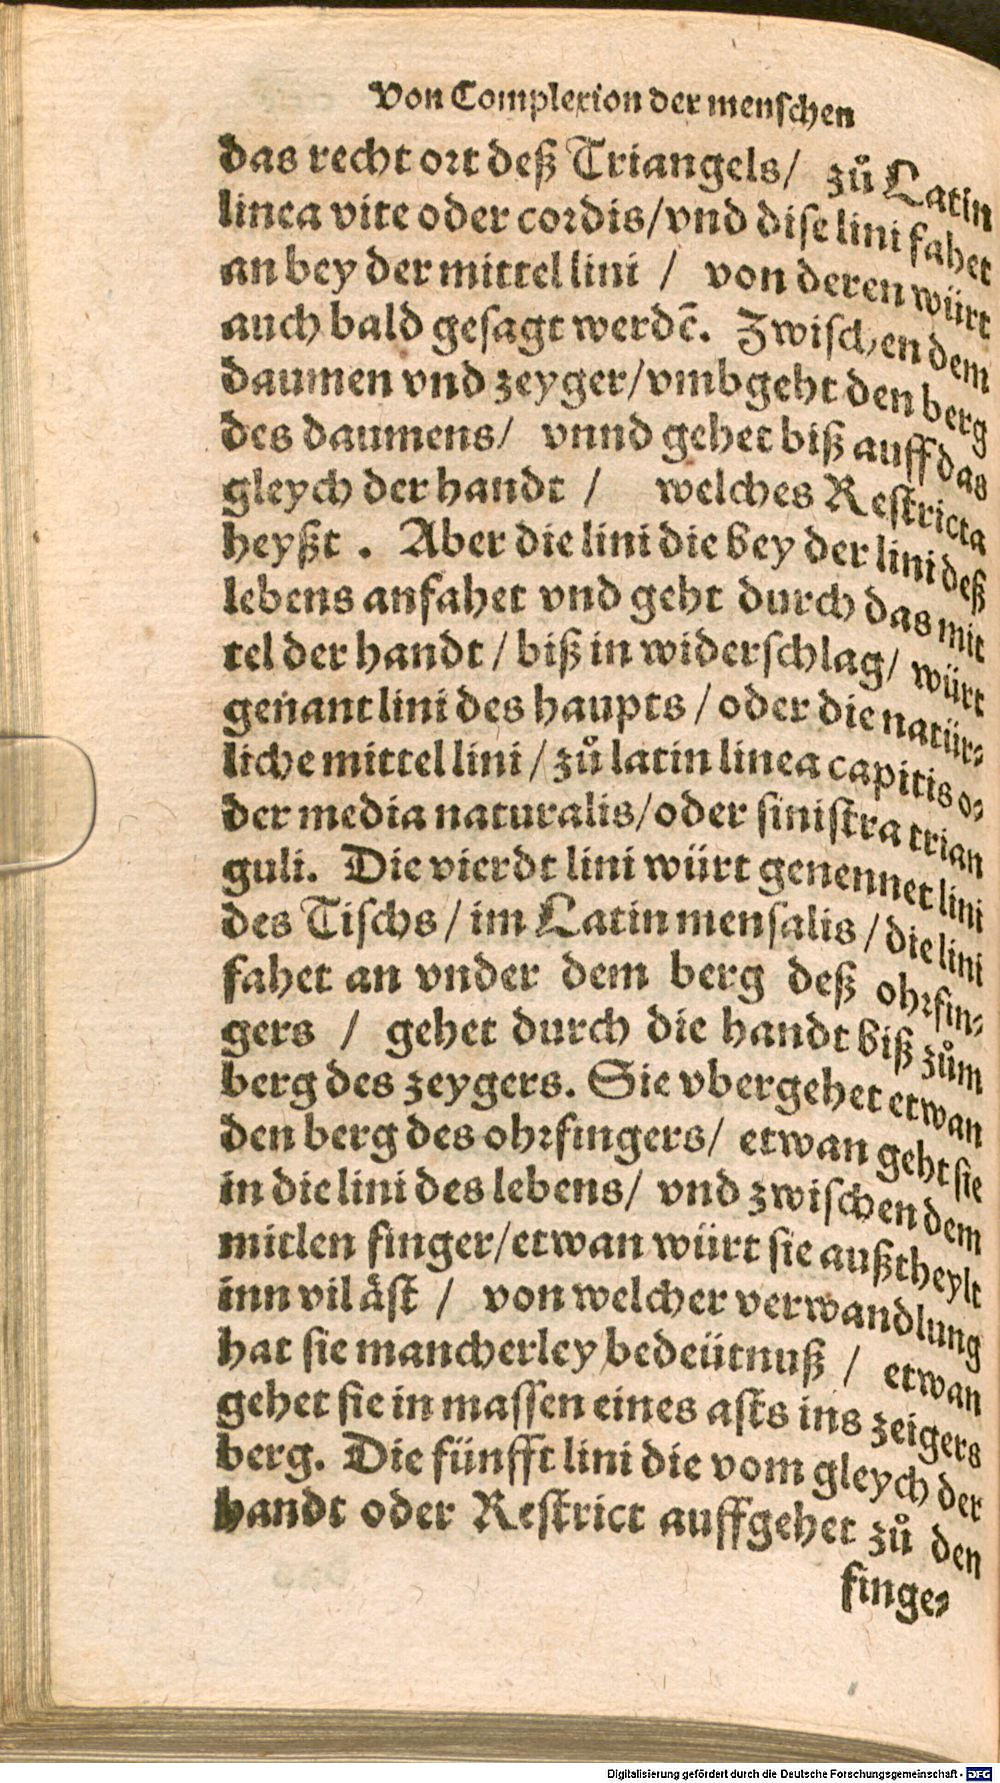 Von Complexion der menschen
das recht ort deß Triangels/ zů Latin
linea vite oder cordis/vnd dise lini fahet
an bey der mittel lini / von deren würt
auch bald gesagt werdē. Zwischen dem
daumen vnd zeyger/vmbgeht den berg
des daumens/ vnnd gehet biß auff das
gleych der handt / welches Restricta
heyßt . Aber die lini die bey der lini deß
lebens anfahet vnd geht durch das mit
tel der handt / biß in widerschlag/ würt
genant lini des haupts / oder die natür⸗
liche mittel lini / zů latin linea capitis o⸗
der media naturalis/oder sinistra trian
guli. Die vierdt lini würt genennet lini
des Tischs / im Latin mensalis / die lini
fahet an vnder dem berg deß ohrfin⸗
gers / gehet durch die handt biß zům
berg des zeygers. Sie vbergehet etwan
den berg des ohrfingers/ etwan geht sie
in die lini des lebens/ vnd zwischen dem
mitlen finger/etwan würt sie außtheylt
inn vil åst / von welcher verwandlung
hat sie mancherley bedeütnuß / etwan
gehet sie in massen eines asts ins zeigers
berg. Die fünfft lini die vom gleych der
handt oder Restrict auffgehet zů den
finge⸗
Digitalisierung gefördert durch die Deutsche Forschungsgemeinschaft - DFG